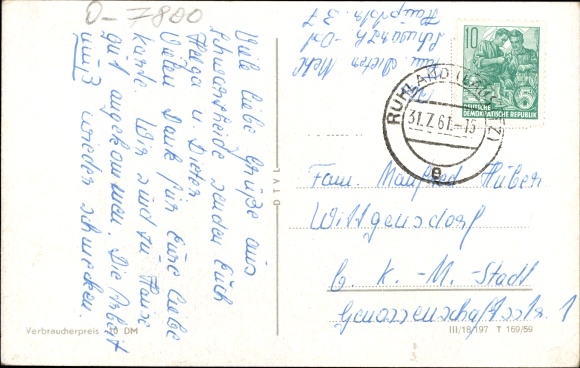 O-7800
Viele liebe Grüße aus
Schwarzheide senden Euch
Helga u. Dieter.
Vielen Dank für Eure liebe
Karte. Wir sind zu Hause
gut angekommen. Die Arbeit
muß wieder schmecken.
Dieter
Schwarzh.-Ost
Hauptstr. 37
10
DEUTSCHE
DEMOKRATISCHE REPUBLIK
RUHLAND
31.7.61.-15
e
Fam. Manfred Huber
Wittgensdorf
b. K.-M.-Stadt
Genossenschaftsstr. 1
DTVL
Verbraucherpreis -,20 DM
III/18/197 T 169/59